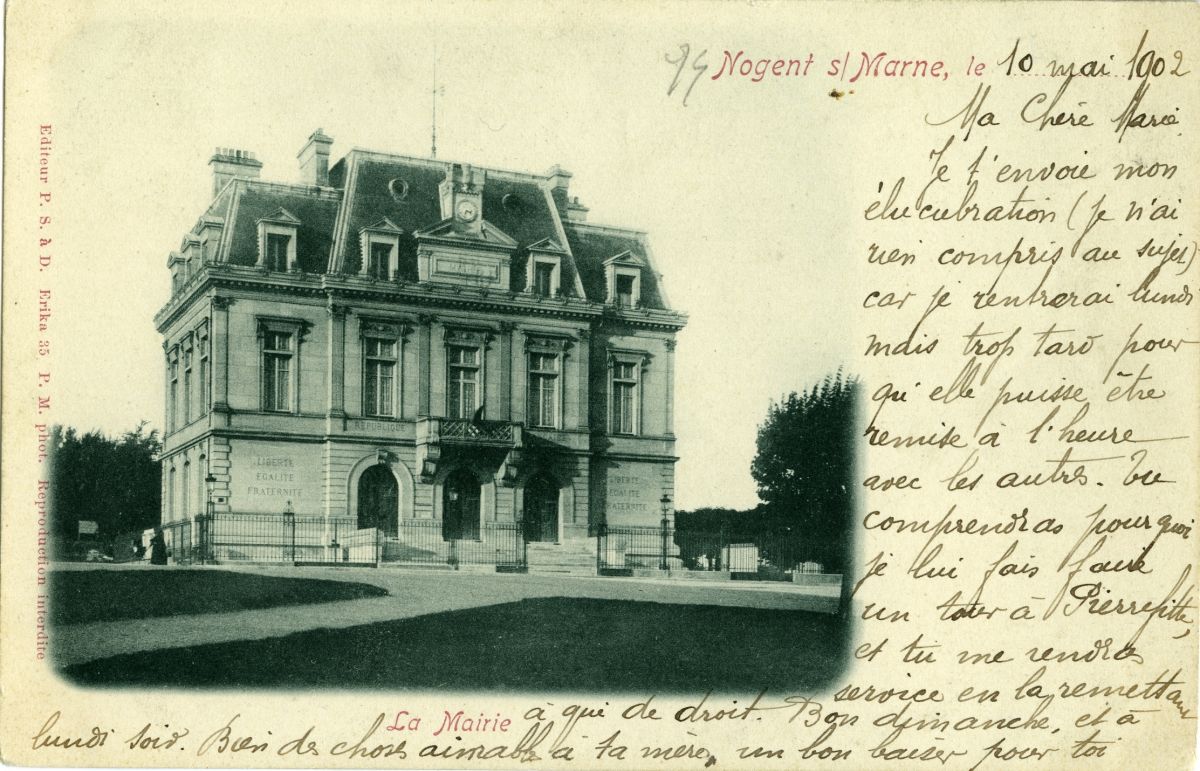 Nogent s/ Marne, le 10 mai 1902
Ma Chère Marie
Je t'envoie mon
élucubration (je n'ai
rien compris au sujet)
car je rentrerai lundi
mais trop tard pour
qu'elle puisse être
remise à l'heure
avec les autres. Tu
comprendras pourquoi
je lui fais faire
un tour à Pierrefitte,
et tu me rendras
service en la remettant
à qui de droit. Bon dimanche, et à
lundi soir. Bien des choses aimables à ta mère, un bon baiser pour toi
La Mairie
Editeur P. S. à D. Erika 35 P. M. phot. Reproduction interdite
RÉPUBLIQUE
LIBERTÉ
EGALITÉ
FRATERNITÉ
LIBERTE
EGALITE
FRATERNITÉ